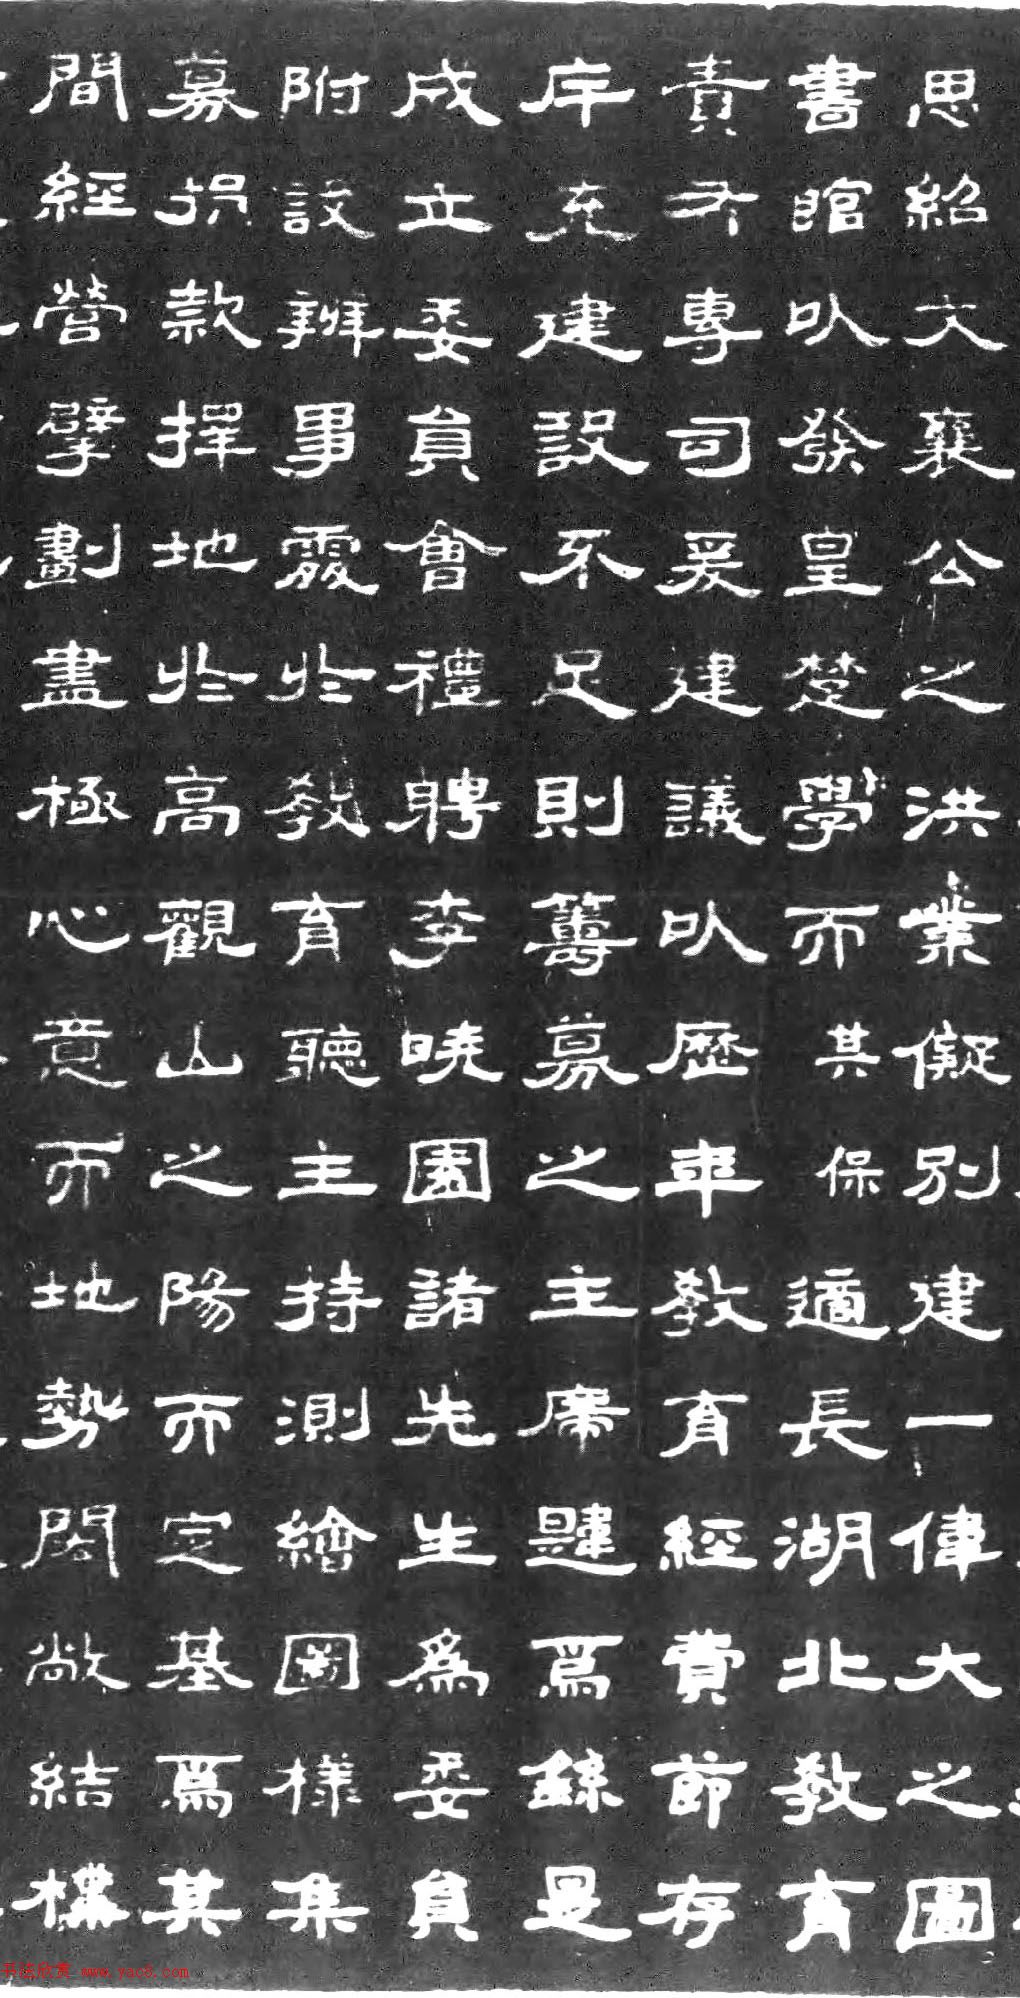 思紹文襄公之洪業儗別建一偉大之圖
書館以發皇楚學而其保適長湖北教育
責有專司爰建議以歷年教育經費節存
序充建設不足則籌募之主席韙焉繇是
成立委員會禮聘李曉園諸先生為委員
附設辦事處於教育聽主持測繪圖樣集
募捐款擇地於高觀山之陽而定基焉其
間經營擘劃盡極心意而地勢閎敞結構
书法欣赏 www.yac8.com